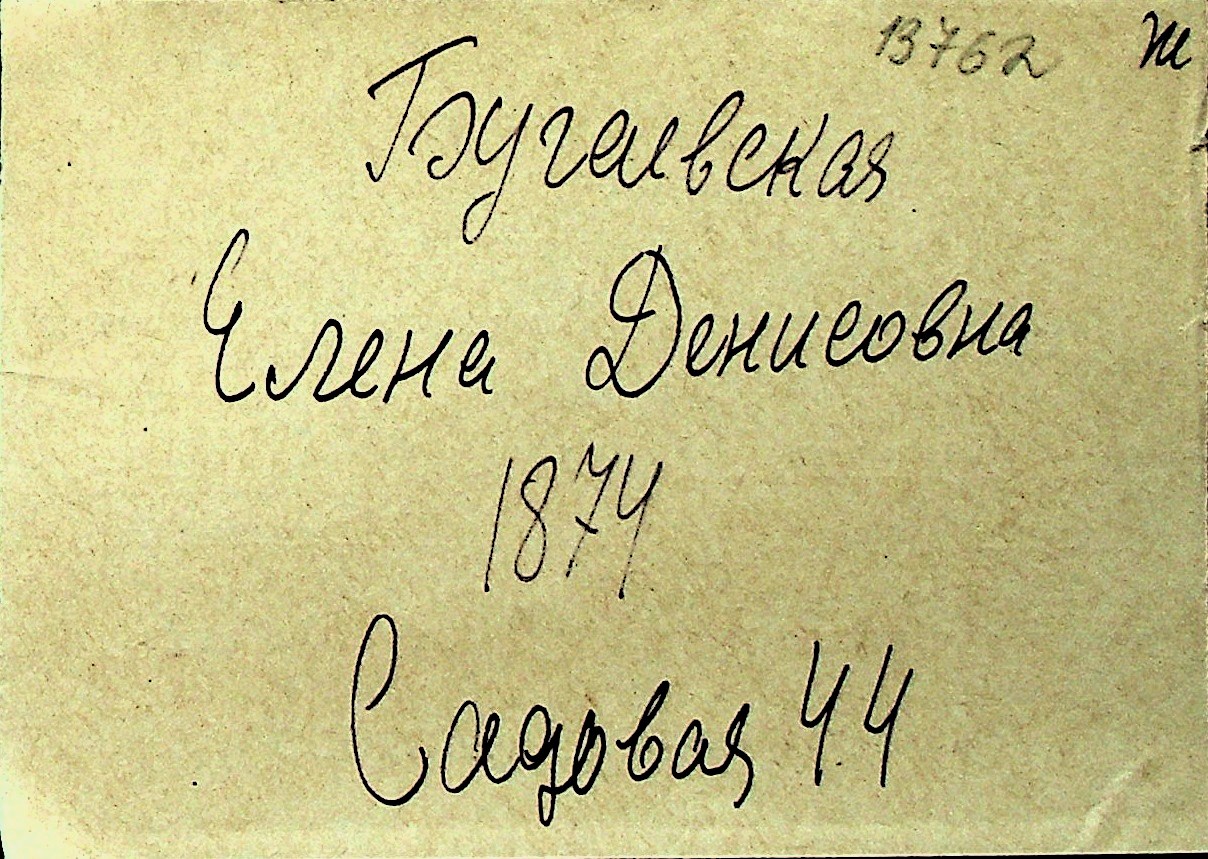 13762 Ж
Бугаевская
Елена Денисовна
1874
Садовая 44